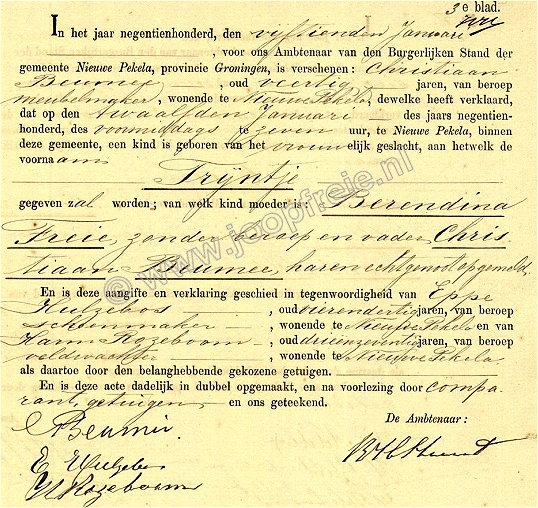 3e blad.
In het jaar negentienhonderd, den vijftienden Januari
, voor ons Ambtenaar van den Burgerlijken Stand der
gemeente Nieuwe Pekela, provincie Groningen, is verschenen: Christiaan
Beumee, oud veertig jaren, van beroep
meubelmaker, wonende te Nieuwe Pekela, dewelke heeft verklaard,
dat op den twaalfden Januari des jaars negentien-
honderd, des voormiddags te zeven uur, te Nieuwe Pekela, binnen
deze gemeente, een kind is geboren van het vrouwelijk geslacht, aan hetwelk de
voornaam
Trijntje
gegeven zal worden; van welk kind moeder is: Berendina
Freie, zonder beroep en vader Chris
tiaan Beumee, haren echtgenoot opgemeld.
En is deze aangifte en verklaring geschied in tegenwoordigheid van Eppe
Hulzebos, oud vierendertig jaren, van beroep
schoenmaker, wonende te Nieuwe Pekela en van
Harm Rozeboom, oud drieënzeventig jaren, van beroep
veldwachter, wonende te Nieuwe Pekela
als daartoe door den belanghebbende gekozene getuigen.
En is deze acte dadelijk in dubbel opgemaakt, en na voorlezing door compa-
rant, getuigen en ons geteekend.
De Ambtenaar:
C Beumee.
E Hulzebos
H Rozeboom
© www.joopfreie.nl